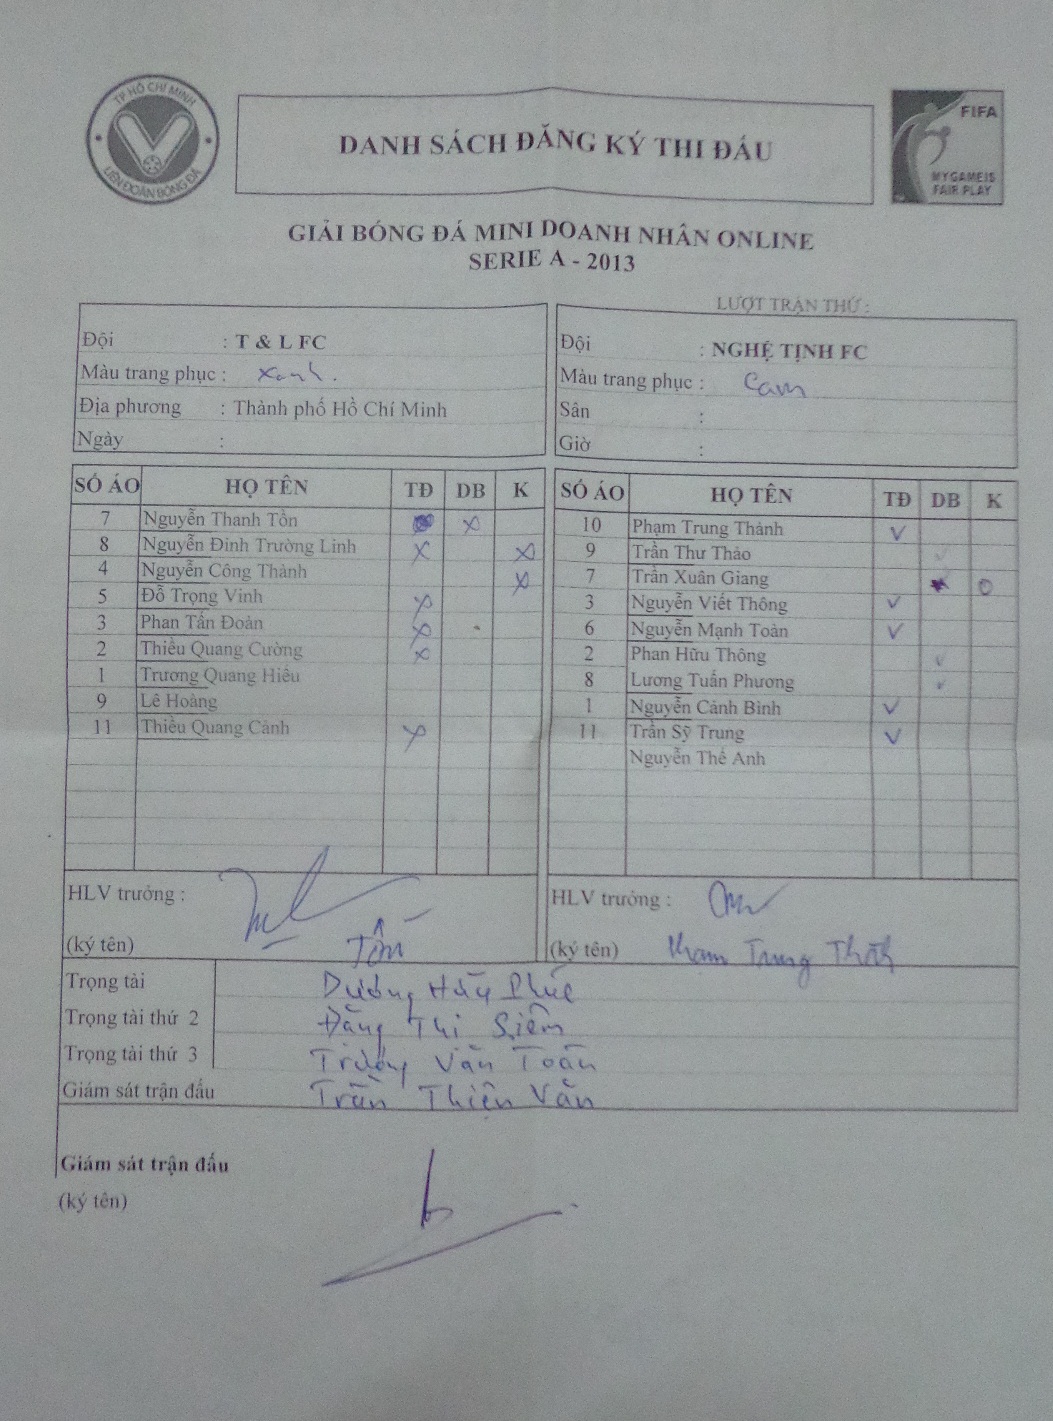 TP HỒ CHÍ MINH
LIÊN ĐOÀN BÓNG ĐÁ
DANH SÁCH ĐĂNG KÝ THI ĐẤU
FIFA
MY GAME IS
FAIR PLAY
GIẢI BÓNG ĐÁ MINI DOANH NHÂN ONLINE
SERIE A - 2013
LƯỢT TRẬN THỨ :
Đội : T & L FC
Màu trang phục : Xanh.
Địa phương : Thành phố Hồ Chí Minh
Ngày :
Đội : NGHỆ TỊNH FC
Màu trang phục : Cam
Sân :
Giờ :
SỐ ÁO HỌ TÊN TĐ DB K
7 Nguyễn Thanh Tồn x
8 Nguyễn Đình Trường Linh x x
4 Nguyễn Công Thành x
5 Đỗ Trọng Vinh x
3 Phan Tấn Đoàn x
2 Thiều Quang Cường x
1 Trương Quang Hiếu
9 Lê Hoàng
11 Thiều Quang Cảnh x
SỐ ÁO HỌ TÊN TĐ DB K
10 Phạm Trung Thành v
9 Trần Thư Thảo v
7 Trần Xuân Giang
3 Nguyễn Viết Thông v
6 Nguyễn Mạnh Toàn v
2 Phan Hữu Thông v
8 Lương Tuấn Phương v
1 Nguyễn Cảnh Bình v
11 Trần Sỹ Trung v
Nguyễn Thế Anh
HLV trưởng :
(ký tên) Tồn
HLV trưởng :
(ký tên) Phạm Trung Thành
Trọng tài Dương Hữu Phúc
Trọng tài thứ 2 Đặng Thị Siêm
Trọng tài thứ 3 Trương Văn Toản
Giám sát trận đấu Trần Thiện Văn
Giám sát trận đấu
(ký tên)